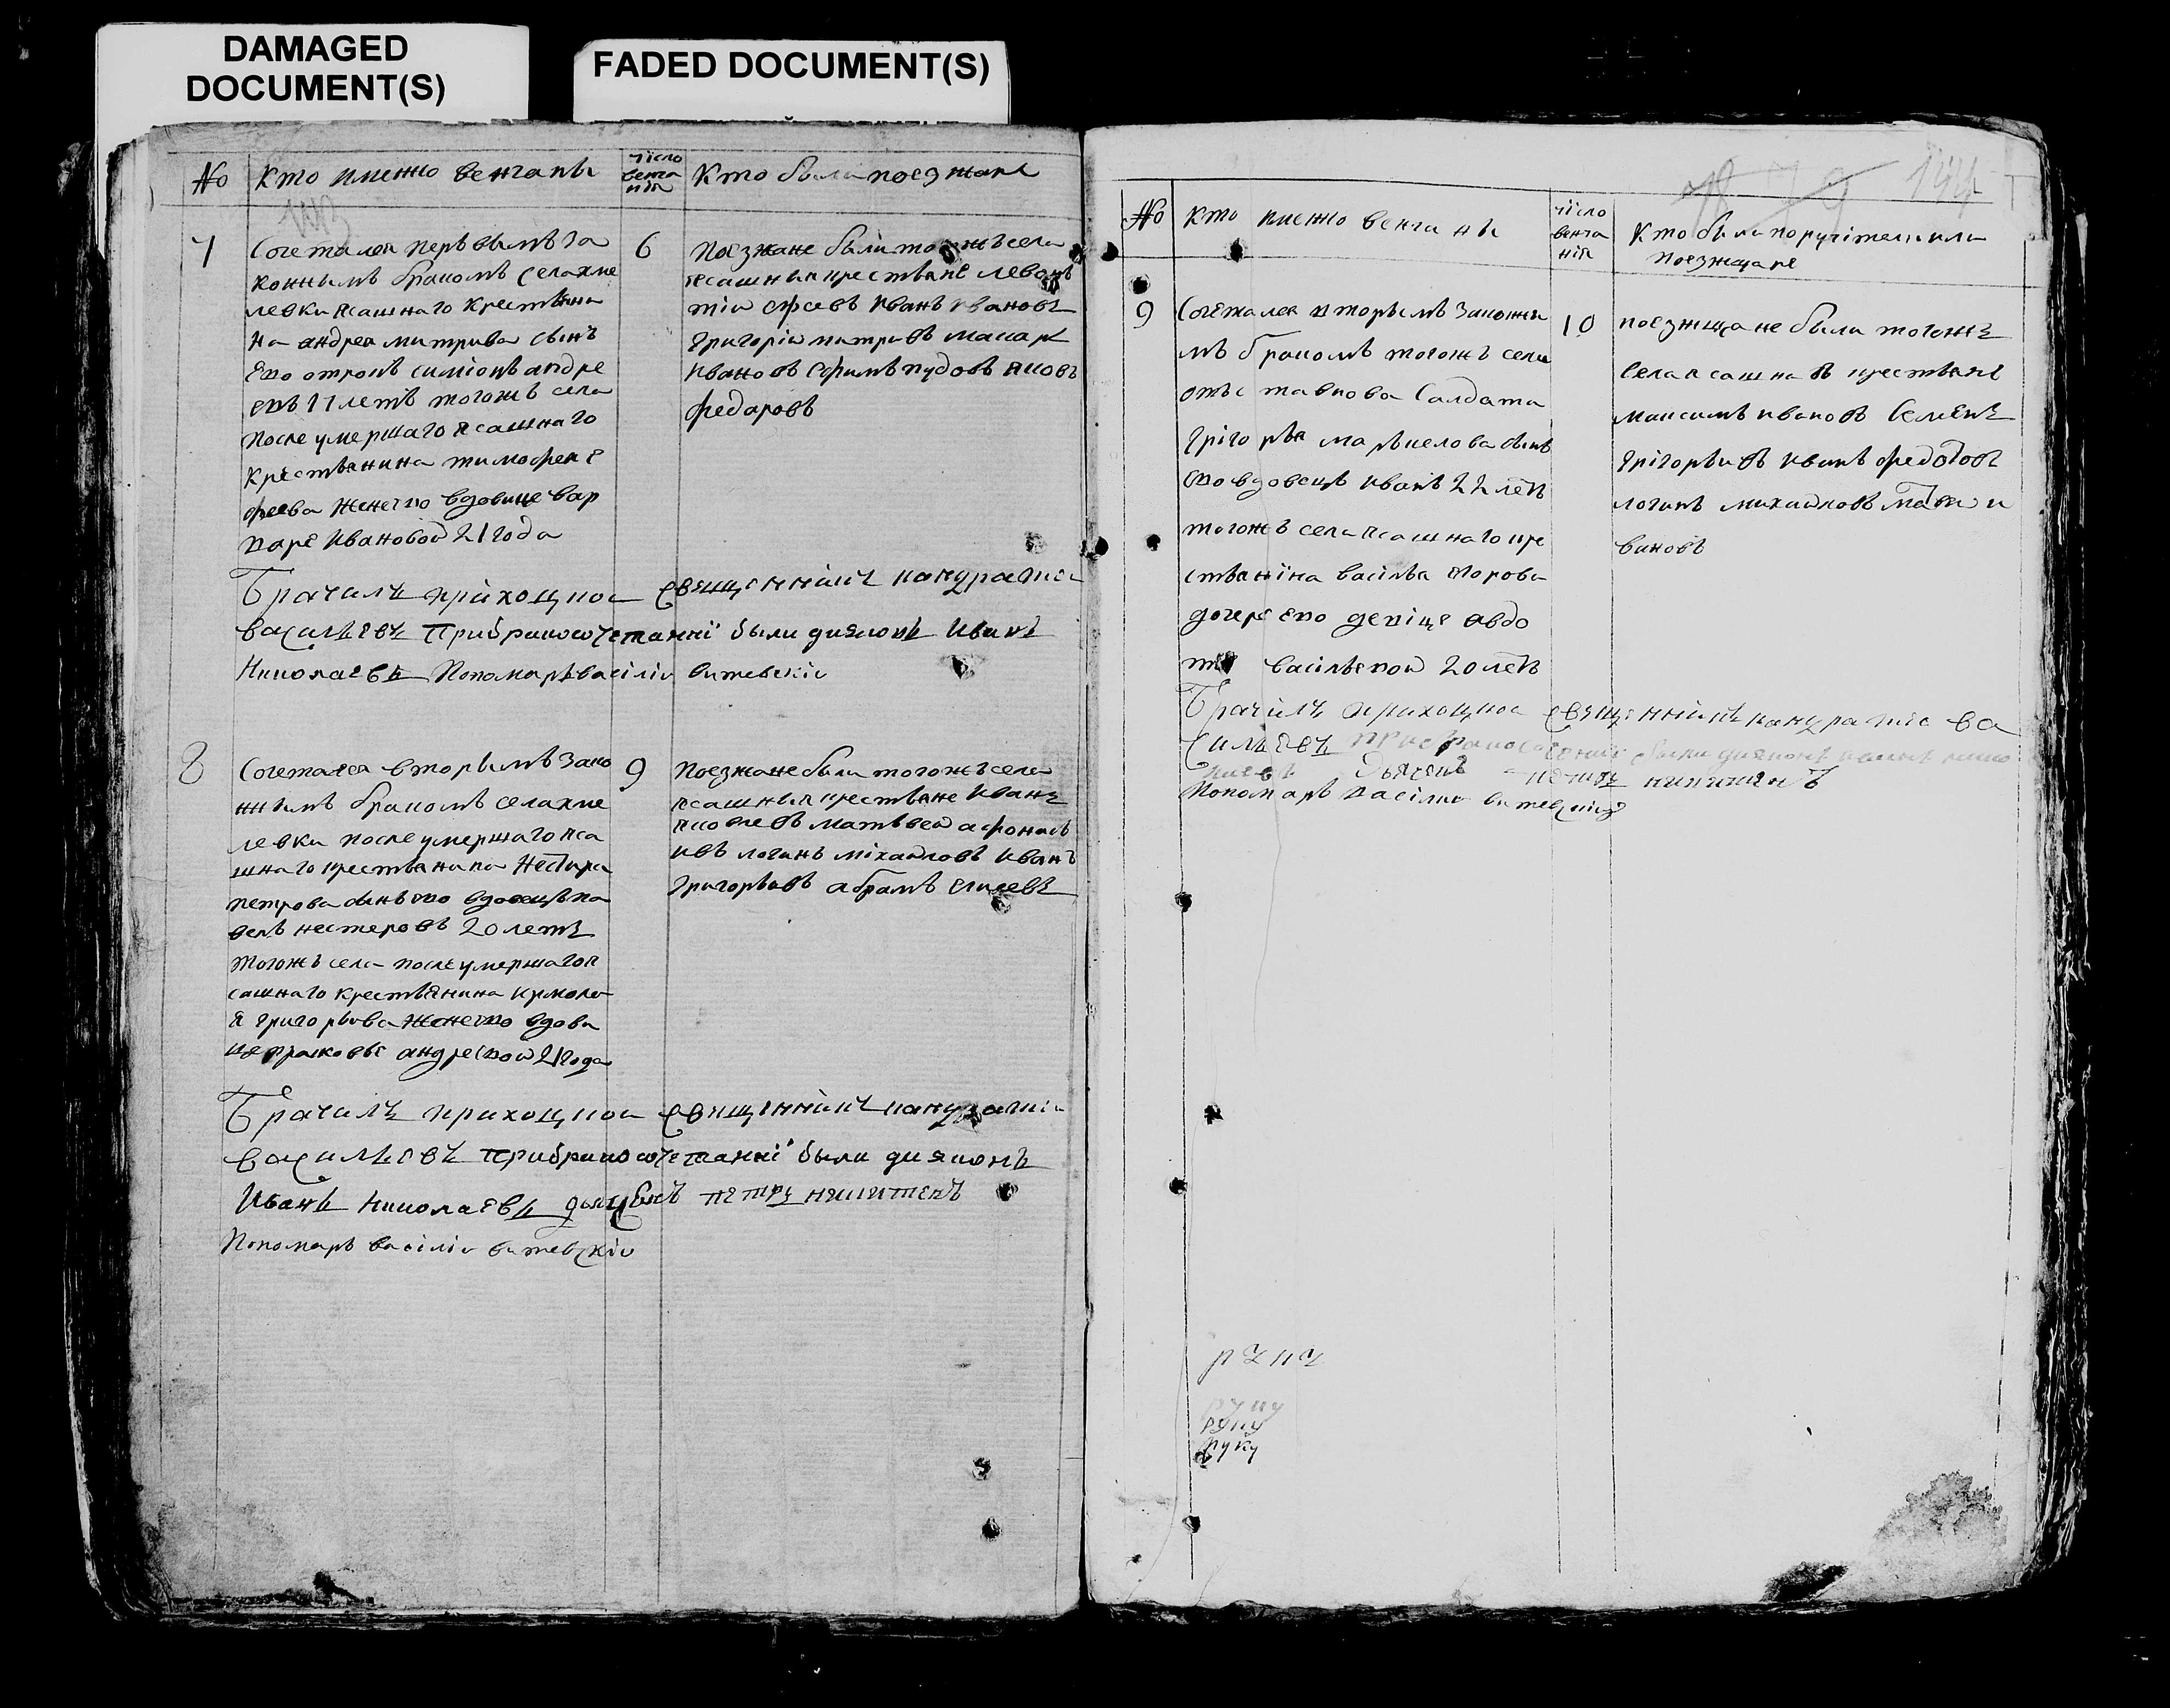 DAMAGED
DOCUMENT(S)
FADED DOCUMENT(S)
No
Кто имено венчаны
число
венча
нїя
Кто были поезжане
7
Сочетался первымъ за
коннымъ бракомъ села хме
левки ясашнаго крестьяни
на андрея митрива сынъ
Ево отрокъ симіонъ андре
евъ 17 летъ тогожъ села
после умершаго ясашнаго
крестьянина тимофея е
феева жене ево вдовице вар
варе Ивановой 21 года
6
Поезжане были тогожъ села
ясашныя крестьяне левонъ
тіи Ивановъ Иванъ Ивановъ
Григоріи митривъ макар
Ивановъ Ефимъ пудовъ яков
федаровъ
Брачилъ приходцкой священникъ кандратеи
василъевъ При бракосочетаниї были дияконъ Иванъ
Николаевъ Пономаръ василіи витевскіи
8
Сочетался вторымъ зако
ннымъ бракомъ села хме
левки после умершаго яса
шнаго крестьянина Нестира
петрова сынъ ево вдовецъ па
велъ нестеровъ 20 летъ
тогожъ села после умершаго я
сашнаго крестьянина Ирмола
я григорьива жене ево вдови
це андревой 21 года
9
Поезжане были тогожъ села
ясашныя крестьяне Иванъ
яковлевъ матьвеи афонась
ивъ логинъ міхаиловъ Иванъ
Григорьивъ абрамъ
Брачилъ приходцкои священникъ кандратеи
василъевъ При бракосочетаниї были дияконъ
Иванъ Николаевъ дьячекъ петръ никитенъ
Пономаръ василіи витевскіи
144
No
Кто имено венчаны
число
венча
нїя
Кто были поручітели или
поезжщане
9
Сочетался вторымъ законны
мъ бракомъ тогожъ села
отъставнова Салдата
Григорья маръкелова сынъ
ево вдовецъ Иванъ 22 летъ
тогожъ села ясашнаго кре
стьянїна васілья
дочере ево девіце авдо
тье васільевои 20 летъ
10
поезжщане были тогожъ
села ясашнаъ крестьяне
максимъ ивановъ Семенъ
Григорьивъ Иванъ федотовъ
логинъ михаиловъ
виновъ
Брачилъ приходцкои священникъ кандратеи ва
силъевъ При бракосочетаниї были дияконъ иванъ нико
лаевъ дьячекъ петръ никитенъ
Пономаръ василии витевский
руку
руку
руку